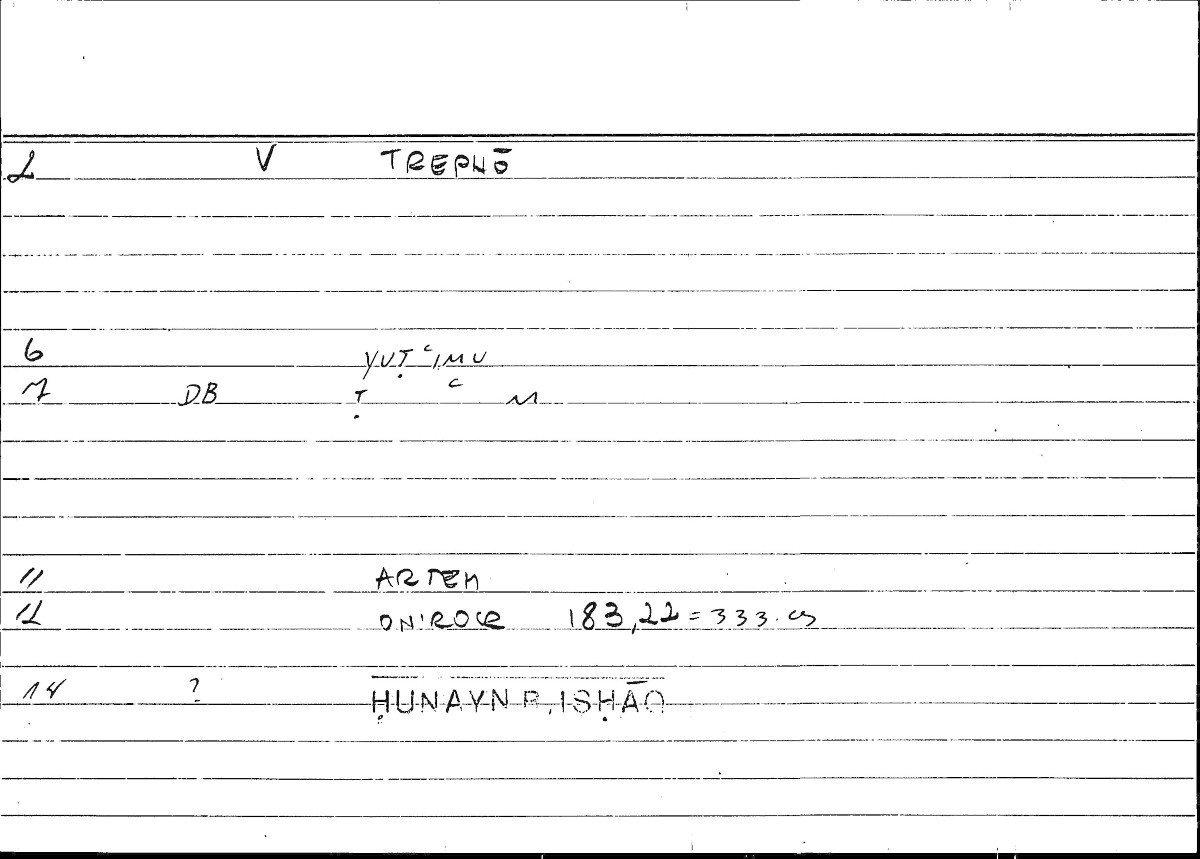 2 V TREPHŌ
6 YUṬʿIMU
7 DB Ṭ ʿ M
11 ARTEM
12 ONIROCR 183,22 = 333.
14 ? ḤUNAYN B. ISḤĀQ